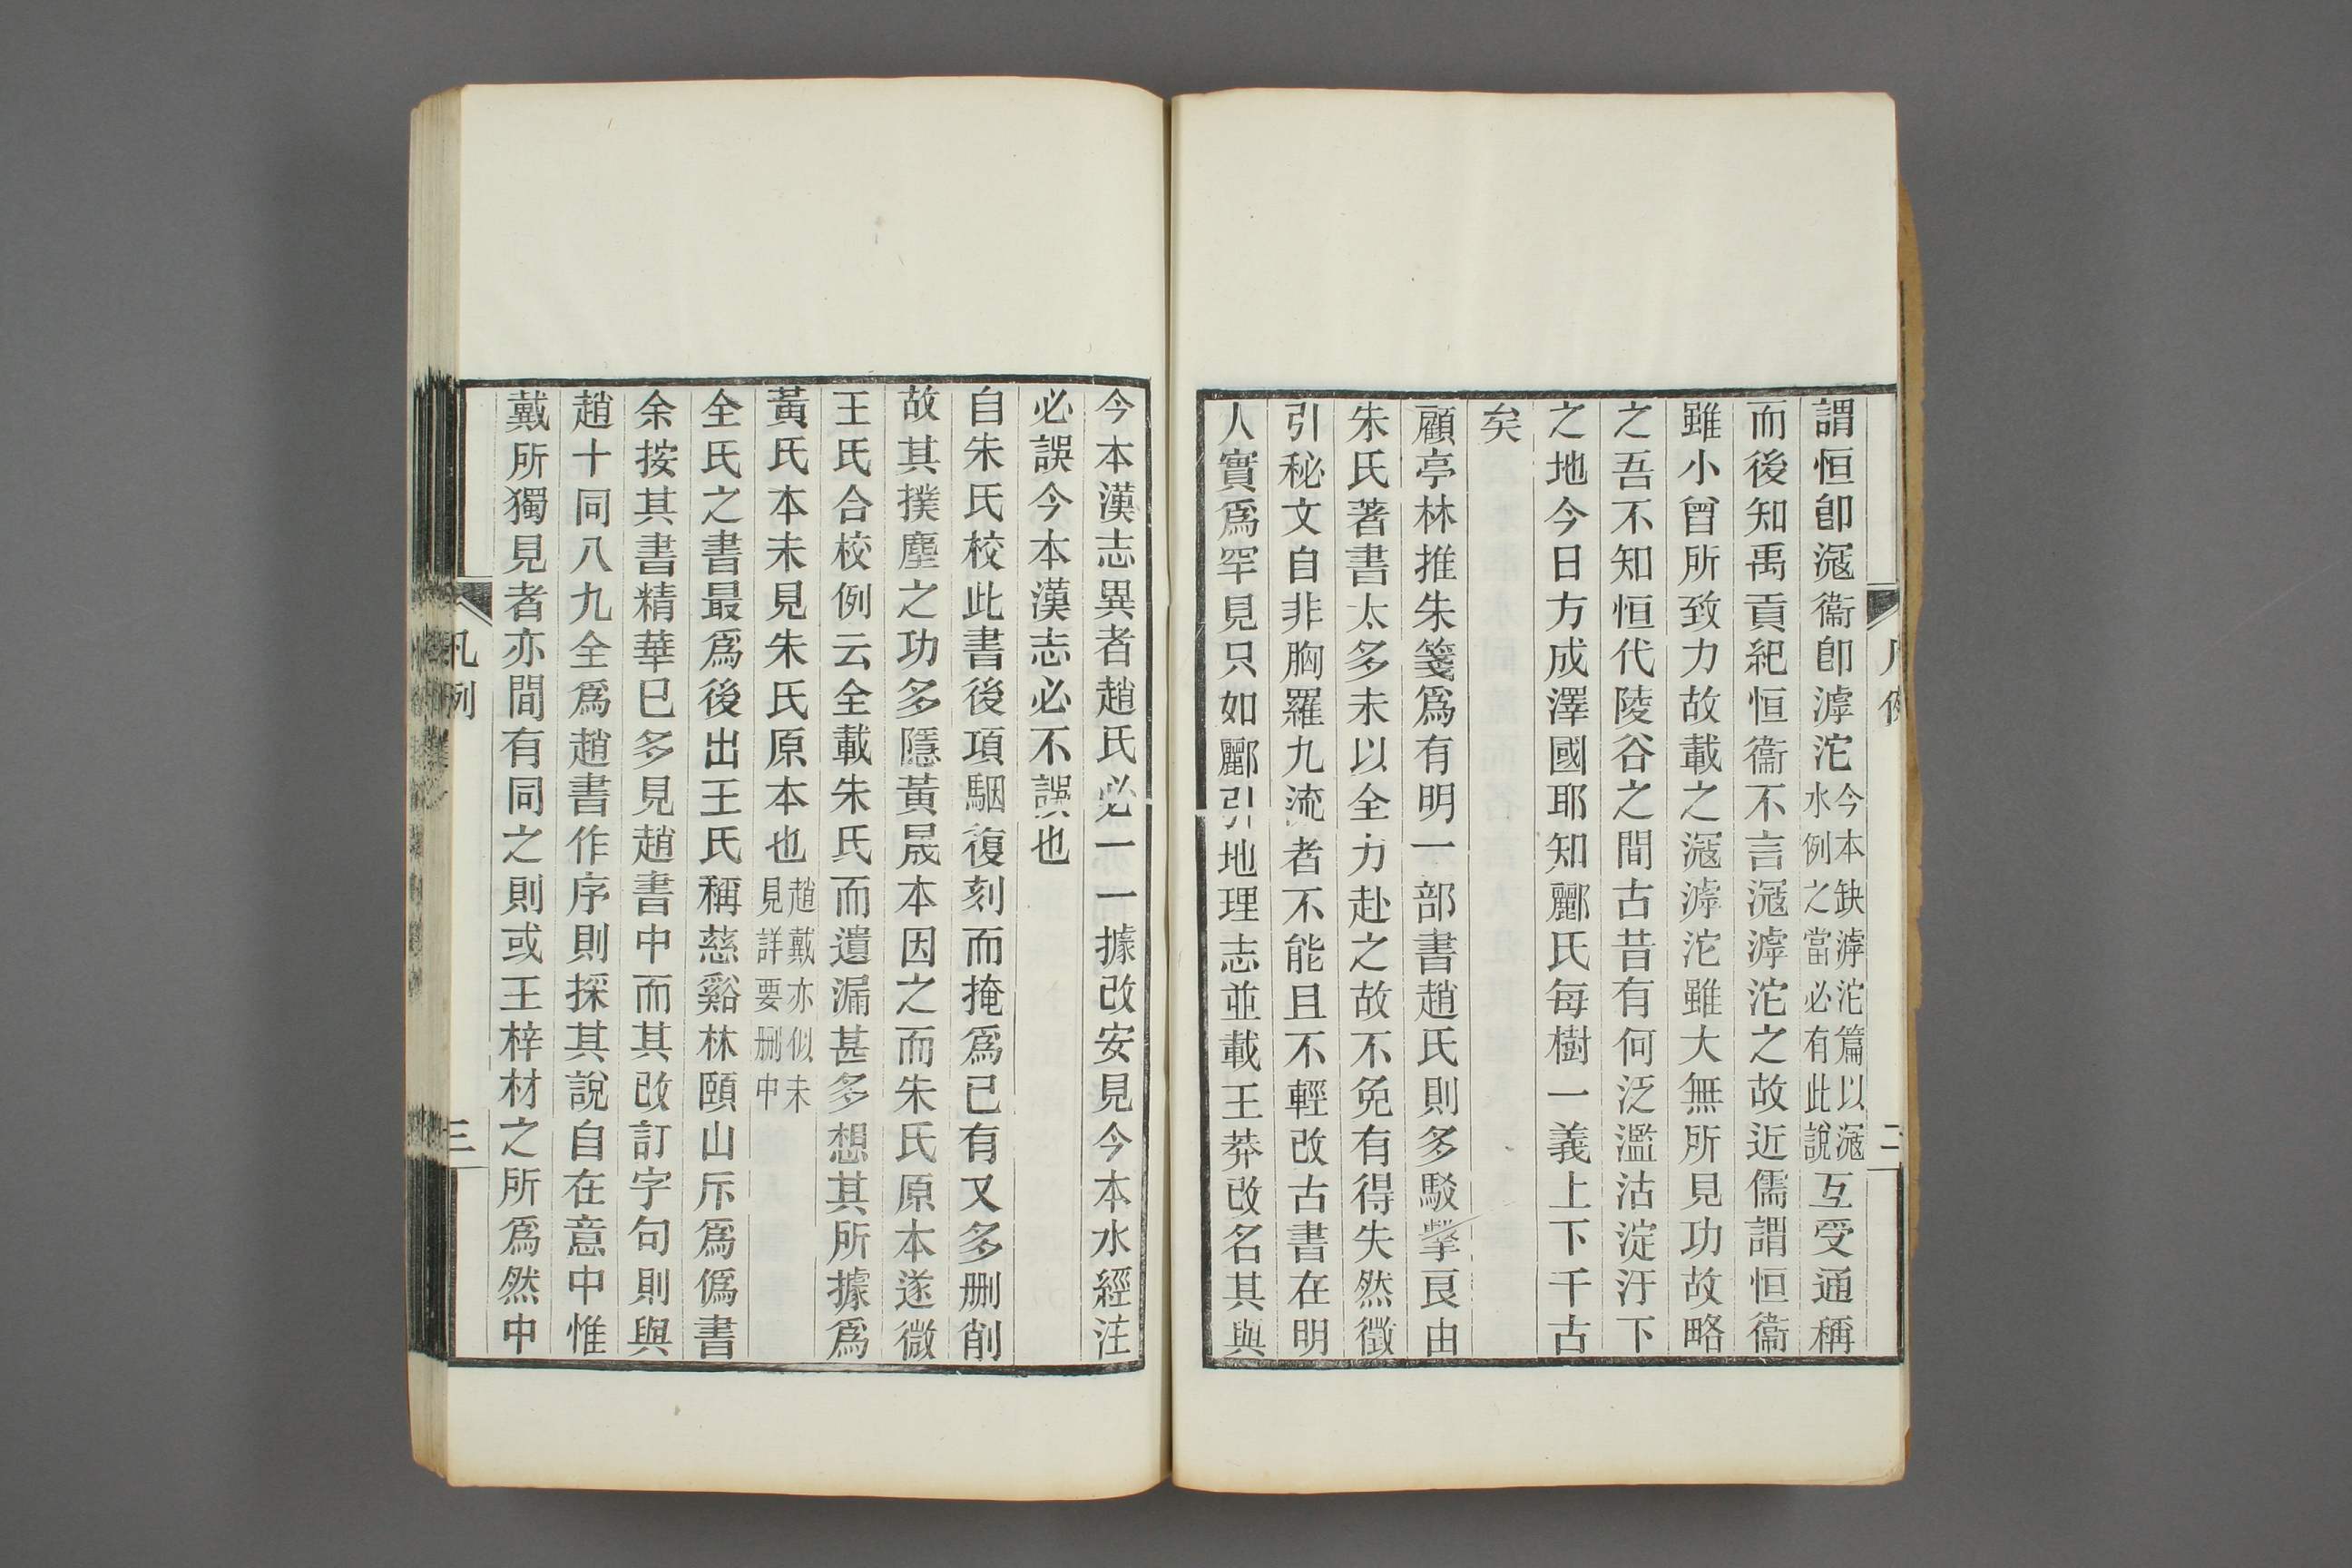 謂恒卽㴆衞卽滹沱今本缺滹沱篇以㴆水例之當必有此說互受通稱
而後知禹貢紀恒衞不言㴆滹沱之故近儒謂恒衞
雖小曾所致力故載之㴆滹沱雖大無所見功故略
之吾不知恒代陵谷之間古昔有何泛濫沽淀汙下
之地今日方成澤國耶知酈氏每樹一義上下千古
矣
顧亭林推朱箋爲有明一部書趙氏則多駁擊良由
朱氏著書太多未以全力赴之故不免有得失然徵
引秘文自非胸羅九流者不能且不輕改古書在明
人實爲罕見只如酈引地理志並載王莽改名其與
今本漢志異者趙氏必一一據改安見今本水經注
必誤今本漢志必不誤也
自朱氏校此書後項駰復刻而掩爲已有又多删削
故其撲塵之功多隱黃晟本因之而朱氏原本遂微
王氏合校例云全載朱氏而遺漏甚多想其所據爲
黃氏本未見朱氏原本也趙戴亦似未見詳要删中
全氏之書最爲後出王氏稱慈谿林頤山斥爲僞書
余按其書精華已多見趙書中而其改訂字句則與
趙十同八九全爲趙書作序則採其說自在意中惟
戴所獨見者亦間有同之則或王梓材之所爲然中
凡例
三